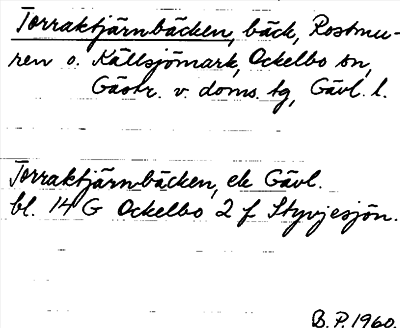 Torraktjärnbäcken, bäck, Rostmu-
ren o. Källsjömark, Ockelbo sn,
Gästr. v. doms. tg, Gävl. l.
Torraktjärnbäcken, ek Gävl.
bl. 14 G Ockelbo 2 f Styvjesjön.
B.P. 1960.